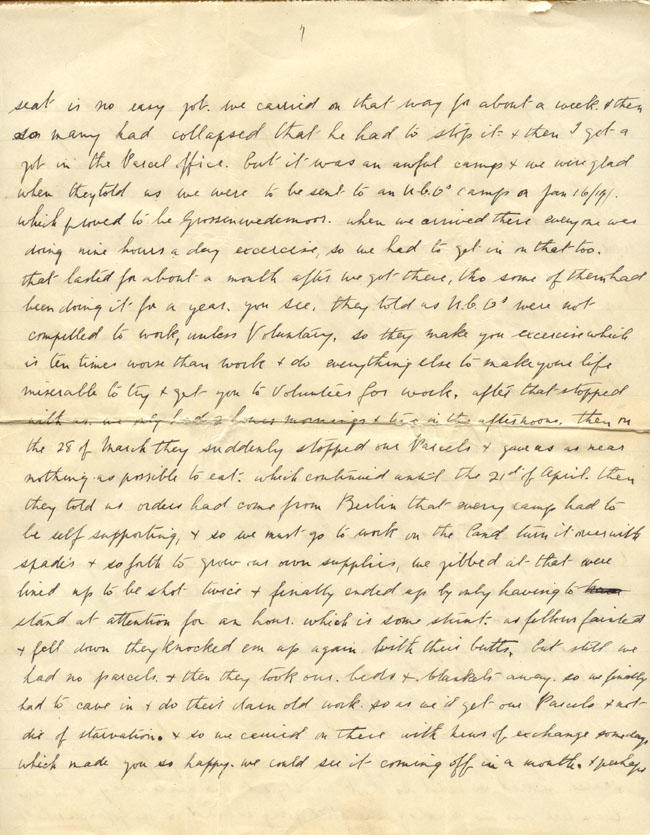 7
seat is no easy job. we carried on that way for about a week. & then
so many had collapsed that he had to stop it & then I got a
job in the Parcel office. but it was an awful camp & we were glad
when they told us we were to be sent to an N.C.O's camp on Jan 16/191.
which proved to be Grossenwedemoor. when we arrived there everyone was
doing nine hours a day excercise, so we had to get in on that too.
that lasted for about a month after we got there, tho some of them had
been doing it for a year. you see, they told us N.C.O's were not
compelled to work, unless Voluntary. so they make you excercise which
is ten times worse than work & do everything else to make your life
miserable to try & get you to Volunteer for work. after that stopped
with us. we only had 2 hours mornings & two in the afternoons. then on
the 28 of March they suddenly stopped our Parcels & gave us as near
nothing as possible to eat. which continued until the 21st of April. then
they told us orders had come from Berlin that every camp had to
be self supporting, & so we must go to work on the land turn it over with
spades & so forth to grow our own supplies, we jibbed at that were
lined up to be shot twice & finally ended up by only having to
stand at attention for an hour. which is some stunt. as fellows fainted
& fell down they knocked em up again with their butts. but still we
had no parcels. & then they took our beds & blankets away. so we finally
had to cave in & do their darn old work. so as we'd get our Parcels & not
die of starvation. & so we carried on there with news of exchange some days
which made you so happy. we could see it coming off in a month. & perhaps